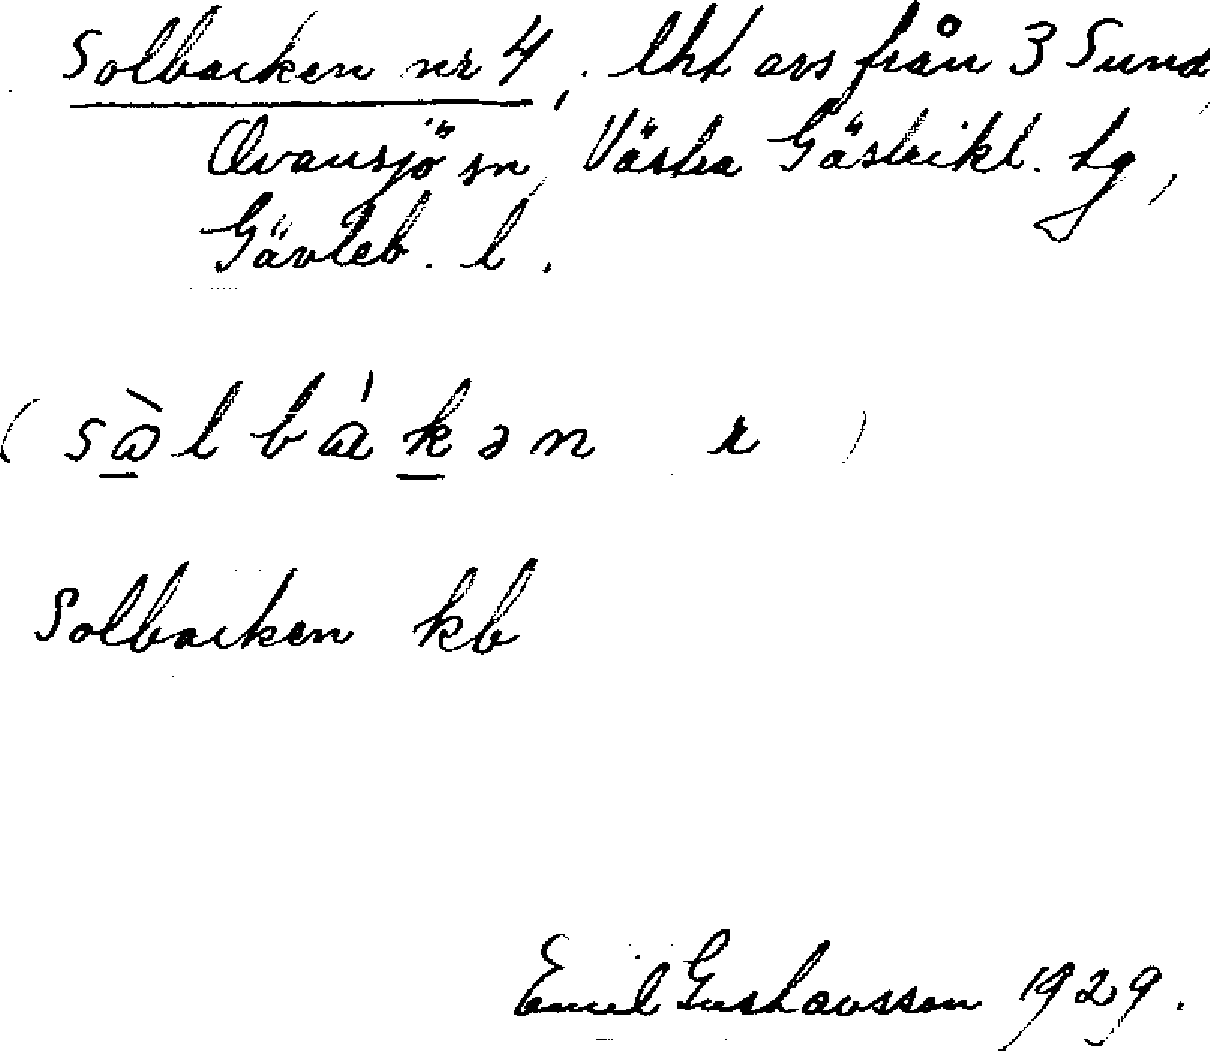 Solbacken nr 4, lht avs från 3 Sund,
Ovansjö sn, Västra Gästrikl. tg,
Gävleb. l.
(sɷ̀lbákən r)
Solbacken kb
Emil Gustavsson 1929.